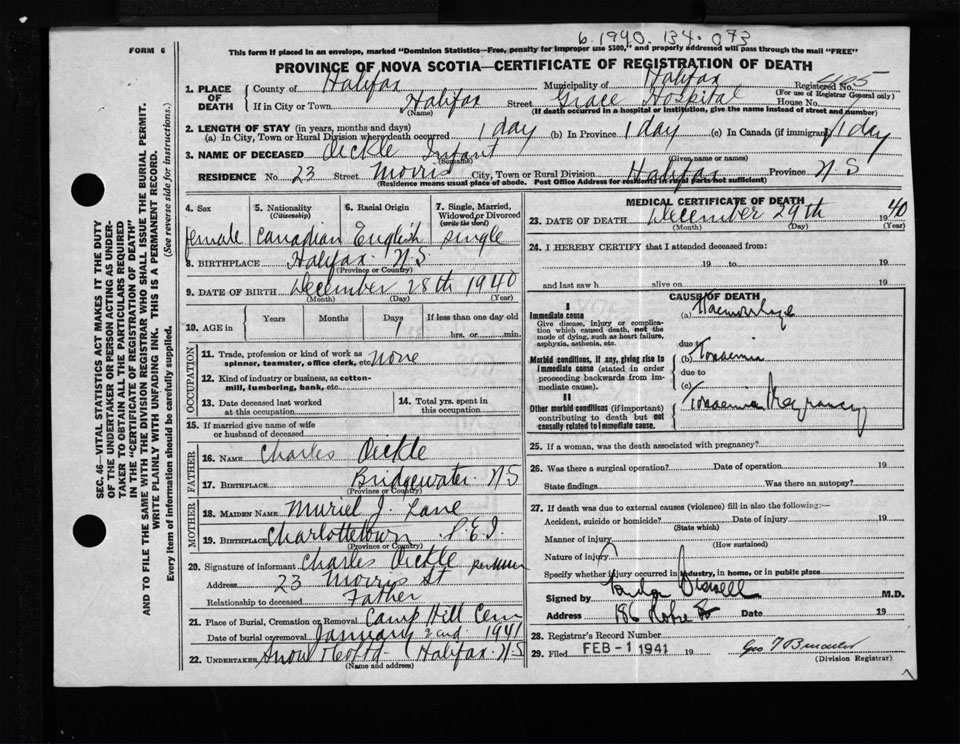 6.1940.134.073
FORM 6
This form if placed in an envelope, marked "Dominion Statistics—Free, penalty for improper use $300," and properly addressed will pass through the mail "FREE"
PROVINCE OF NOVA SCOTIA—CERTIFICATE OF REGISTRATION OF DEATH
1. PLACE OF DEATH County of Halifax Municipality of Halifax Registered No.
(For use of Registrar General only)
If in City or Town Halifax Street Grace Hospital House No.
(Name) (If death occurred in a hospital or institution, give the name instead of street and number)
2. LENGTH OF STAY (in years, months and days)
(a) In City, Town or Rural Division where death occurred 1 day (b) In Province 1 day (c) In Canada (if immigrant) 1 day
3. NAME OF DECEASED Oickle Infant
(Surname) (Given name or names)
RESIDENCE No. 23 Street Morris City, Town or Rural Division Halifax Province N S
(Residence means usual place of abode. Post Office Address for residents in rural parts not sufficient)
4. Sex female
5. Nationality (Citizenship) Canadian
6. Racial Origin English
7. Single, Married, Widowed or Divorced (write the word) single
8. BIRTHPLACE Halifax N.S.
(Province or Country)
9. DATE OF BIRTH December 28th 1940
(Month) (Day) (Year)
10. AGE in Years Months Days 1 If less than one day old
hrs. or min.
OCCUPATION
11. Trade, profession or kind of work as spinner, teamster, office clerk, etc. none
12. Kind of industry or business, as cotton-mill, lumbering, bank, etc.
13. Date deceased last worked at this occupation
14. Total yrs. spent in this occupation
15. If married give name of wife or husband of deceased
FATHER
16. NAME Charles Oickle
17. BIRTHPLACE Bridgewater N S
(Province or Country)
MOTHER
18. MAIDEN NAME Muriel J. Lane
19. BIRTHPLACE Charlottetown P.E.I.
(Province or Country)
20. Signature of informant Charles Oickle
Address 23 Morris St
Relationship to deceased Father
21. Place of Burial, Cremation or Removal Camp Hill Cem
Date of burial or removal January 2nd 1941
22. UNDERTAKER Snow Halifax N S
(Name and address)
MEDICAL CERTIFICATE OF DEATH
23. DATE OF DEATH December 29th 1940
(Month) (Day) (Year)
24. I HEREBY CERTIFY that I attended deceased from:
19 to 19
and last saw h alive on 19
CAUSE OF DEATH
I
Immediate cause
Give disease, injury or complication which caused death, not the mode of dying, such as heart failure, asphyxia, asthenia, etc.
(a) Haemorrhage
due to
Morbid conditions, if any, giving rise to immediate cause (stated in order proceeding backwards from immediate cause).
(b) Toxaemia
due to
(c)
II
Other morbid conditions (if important) contributing to death but not causally related to immediate cause.
Toxaemia Pregnancy
25. If a woman, was the death associated with pregnancy?
26. Was there a surgical operation? Date of operation 19
State findings Was there an autopsy?
27. If death was due to external causes (violence) fill in also the following:—
Accident, suicide or homicide? Date of injury 19
(State which)
Manner of injury
(How sustained)
Nature of injury
Specify whether injury occurred in industry, in home, or in public place
Signed by M.D.
Address 186 Date 19
28. Registrar's Record Number
29. Filed FEB - 1 1941 19
(Division Registrar)
SEC. 46—VITAL STATISTICS ACT MAKES IT THE DUTY
OF THE UNDERTAKER OR PERSON ACTING AS UNDER-
TAKER TO OBTAIN ALL THE PARTICULARS REQUIRED
IN THE "CERTIFICATE OF REGISTRATION OF DEATH"
AND TO FILE THE SAME WITH THE DIVISION REGISTRAR WHO SHALL ISSUE THE BURIAL PERMIT.
WRITE PLAINLY WITH UNFADING INK. THIS IS A PERMANENT RECORD.
Every item of information should be carefully supplied. (See reverse side for instructions.)